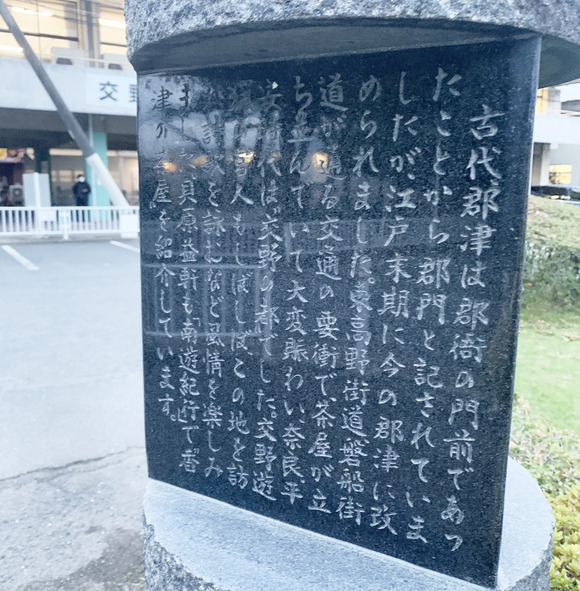 古代郡津は郡衙の門前であっ
たことから郡門と記されていま
したが江戸末期に今の郡津に改
められました。東高野街道磐船街
道が通る交通の要衝で茶屋が立
ち並んでいて大変賑わい、奈良平
安時代は交野の郡でした。交野遊
猟の宮人もしばしばこの地を訪
れ詩歌を詠むなど風情を楽しみ
ました。貝原益軒も南遊紀行で香
津の茶屋を紹介しています。
交野